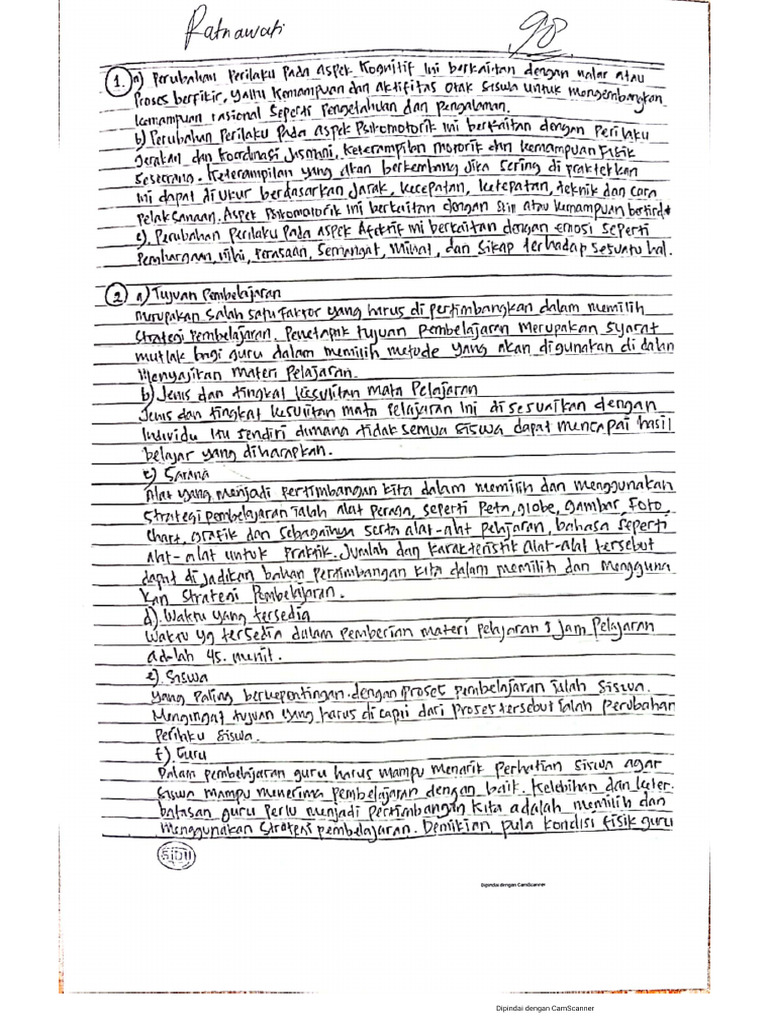 Ratnawati
98
1. a) Perubahan Perilaku Pada aspek Kognitif ini berkaitan dengan nalar atau
Proses berfikir, yaitu Kemampuan dan aktifitas otak siswa untuk mengembangkan
kemampuan rasional seperti Pengetahuan dan pengalaman.
b) Perubahan Perilaku Pada aspek Psikomotorik ini berkaitan dengan Perilaku
gerakan dan koordinasi Jasmani, keterampilan motorik dan kemampuan Fisik
seseorang. Keterampilan yang akan berkembang Jika sering di praktekkan
ini dapat di ukur berdasarkan Jarak, kecepatan, ketepatan, teknik dan cara
pelaksanaan. Aspek Psikomotorik ini berkaitan dengan skin atau kemampuan bertindak
c). Perubahan Perilaku Pada aspek Afektif ini berkaitan dengan emosi seperti
Penghargaan, nilai, perasaan, Semangat, minat, dan Sikap terhadap sesuatu hal.
2 a) Tujuan Pembelajaran
merupakan salah satu Faktor yang harus di pertimbangkan dalam memilih
Strategi Pembelajaran. Penetapnk tujuan pembelajaran Merupakan syarat
mutlak bagi guru dalam memilih metode yang akan digunakan di dalam
Menyajikan materi Pelajaran.
b) Jenis dan tingkat kesulitan mata Pelajaran
Jenis dan tingkat kesulitan mata Pelajaran ini di sesuaikan dengan
Individu itu sendiri dimana tidak semua siswa dapat mencapai hasil
belajar yang diharapkan.
c) Sarana
Alat yang menjadi pertimbangan kita dalam memilih dan menggunakan
strategi pembelajaran ialah alat peraga, seperti Peta, globe, gambar, Foto,
chart, grafik dan sebagainya serta alat-alat pelajaran, bahasa seperti
alat-alat untuk Praktik. Jumlah dan karakteristik alat-alat tersebut
dapat di jadikan bahan pertimbangan kita dalam memilih dan mengguna
kan strategi Pembelajaran.
d). Waktu yang tersedia
Waktu yg tersedia dalam Pemberian materi pelajaran Jam Pelajaran
adalah 45. menit.
e). Siswa
yang Paling berkepentingan dengan proses pembelajaran ialah Siswa.
Mengingat tujuan yang harus di capai dari Proses tersebut ialah perubahan
Perilaku siswa.
f). Guru
Dalam pembelajaran guru harus mampu menarik Perhatian siswa agar
siswa mampu menerima pembelajaran dengan baik. Kelebihan dan keter-
batasan guru perlu menjadi Pertimbangan kita adalah memilih dan
menggunakan strategi pembelajaran. Demikian pula kondisi fisik guru
SIDU
Dipindai dengan CamScanner
Dipindai dengan CamScanner